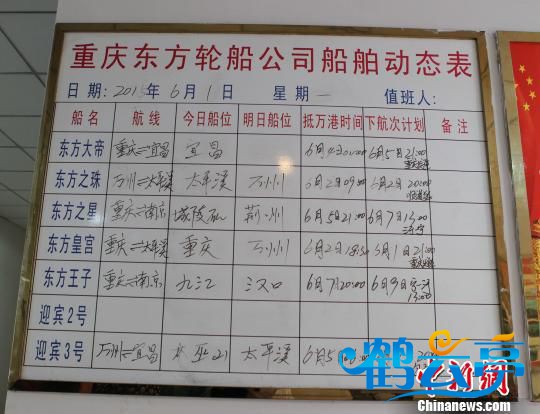 重庆东方轮船公司船舶动态表
日期: 2015年6月1日 星期一 值班人:
船名 航线 今日船位 明日船位 抵万港时间 下航次计划 备注
东方大帝 重庆⇌宜昌 宜昌 6月5日21:00
东方之珠 万州⇌太平溪 太平溪 万州 6月2日09:00 6月2日 20:00
东方之星 重庆⇌南京 城陵矶 荆州 6月5日21:00 6月7日13:00
东方皇宫 重庆⇌太平溪 重庆 万州 6月2日18:30 6月1日21:00
东方王子 重庆⇌南京 九江 汉口 6月7日20:00 6月9日 13:00
迎宾2号
迎宾3号 万州⇌宜昌 太平溪 6月5日
鹤云亭
中新网
Chinanews.com